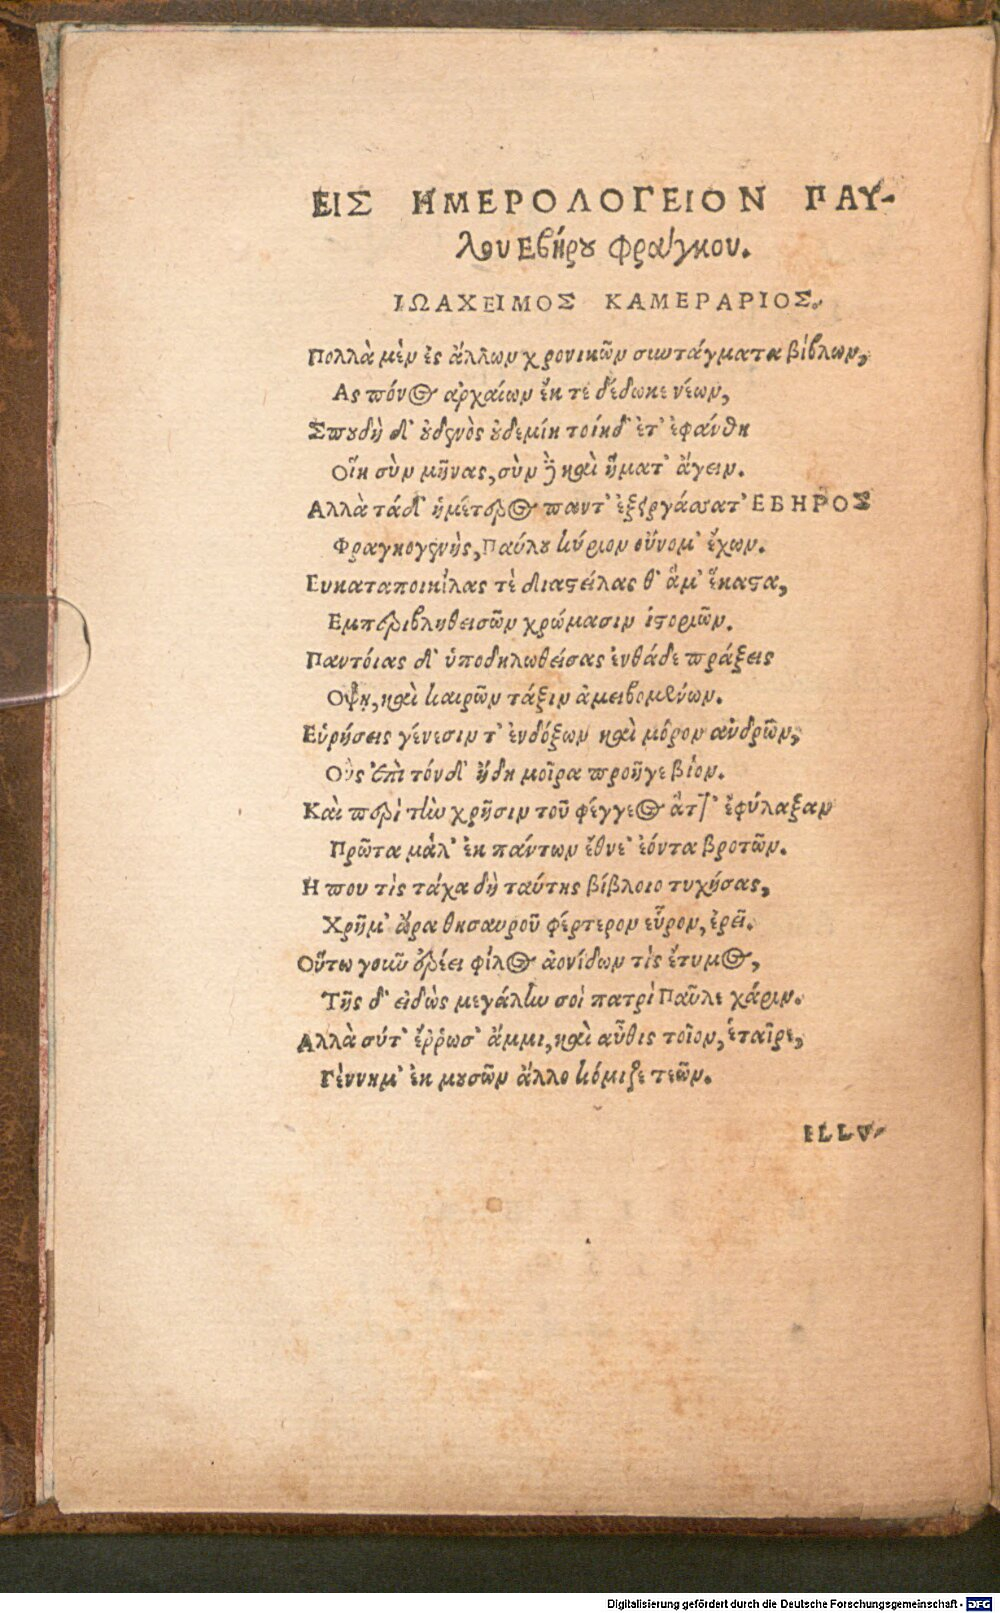 ΕΙΣ ΗΜΕΡΟΛΟΓΕΙΟΝ ΠΑΥ-
λου Εβήρου Φράγκου.
ΙΩΑΧΕΙΜΟΣ ΚΑΜΕΡΑΡΙΟΣ.
Πολλὰ μὲν ἐς ἄλλων χρονικῶν συντάγματα βίβλων,
Ας πόνος ἀρχαίων ἔκ τε δέδωκε νέων,
Σπουδὴ δ' οὐδενὸς οὐδεμίη τοίηδ' ἐτ' ἐφάνθη
Οἵη σὺν μῆνας, σὺν δὲ καὶ ἤματ' ἄγειν.
Αλλὰ τάδ' ἡμέτερος πάντ' ἐξειργάσατ' ΕΒΗΡΟΣ
Φραγκογενὴς, Παύλου κύριον οὔνομ' ἔχων.
Ευκαταποικίλας τὲ διαστείλας θ' ἅμ' ἕκαστα,
Εμπεριβληθεισῶν χρώμασιν ἱστοριῶν.
Παντόιας δ' ὑποδηλωθείσας ἐνθάδε πράξεις
Οψῃ, καὶ καιρῶν τάξιν ἀμειβομένων.
Εὑρήσεις γένεσιν τ' ἐνδόξων καὶ μόρον ἀνδρῶν,
Οὓς ἐπὶ τόνδ' ἤδη μοῖρα προῆγε βίον.
Καὶ περὶ τὴν χρῆσιν τοῦ φέγγεος ἅττ' ἐφύλαξαν
Πρῶτα μάλ' ἐκ πάντων ἔθνε' ἐόντα βροτῶν.
Η που τὶς τάχα δὴ ταύτης βίβλοιο τυχήσας,
Χρῆμ' ὥρα θησαυροῦ φέρτερον εὗρον, ἐρεῖ.
Οὕτω γοῦν ἐρέει φίλος ἀονίδων τὶς ἔτυμος,
Τῆς δ' εἰδὼς μεγάλην σοὶ πατρὶ Παῦλε χάριν.
Αλλὰ σύτ' ἔῤῥωσ' ἄμμι, καὶ αὖθις τοῖον, ἑταῖρε,
Γέννημ' ἐκ μουσῶν ἄλλο κόμιζε τεῶν.
ILLV-
Digitalisierung gefördert durch die Deutsche Forschungsgemeinschaft - DFG